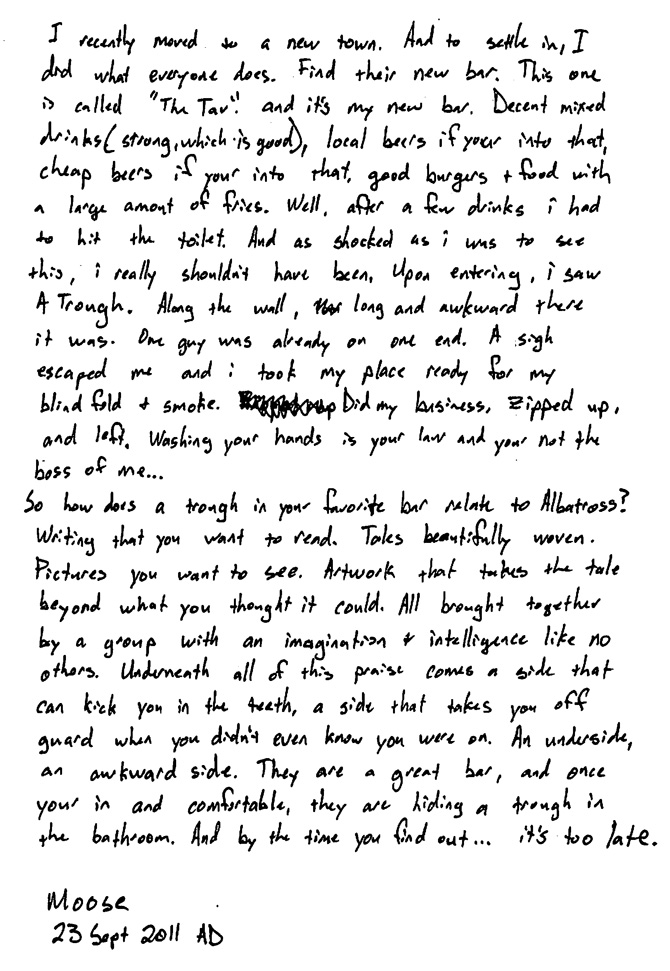 I recently moved to a new town. And to settle in, I
did what everyone does. Find their new bar. This one
is called "The Tav". and it's my new bar. Decent mixed
drinks (strong, which is good), local beers if your into that,
cheap beers if your into that, good burgers + food with
a large amont of fries. Well, after a few drinks i had
to hit the toilet. And as shocked as i was to see
this, i really shouldn't have been. Upon entering, i saw
A Trough. Along the wall, long and awkward there
it was. One guy was already on one end. A sigh
escaped me and i took my place ready for my
blind fold + smoke. Did my business, zipped up,
and left. Washing your hands is your law and your not the
boss of me...
So how does a trough in your favorite bar relate to Albatross?
Writing that you want to read. Tales beautifully woven.
Pictures you want to see. Artwork that takes the tale
beyond what you thought it could. All brought together
by a group with an imagination & intelligence like no
others. Underneath all of this praise comes a side that
can kick you in the teeth, a side that takes you off
guard when you didn't even know you were on. An underside,
an awkward side. They are a great bar, and once
your in and comfortable, they are hiding a trough in
the bathroom. And by the time you find out... it's too late.
Moose
23 Sept 2011 AD